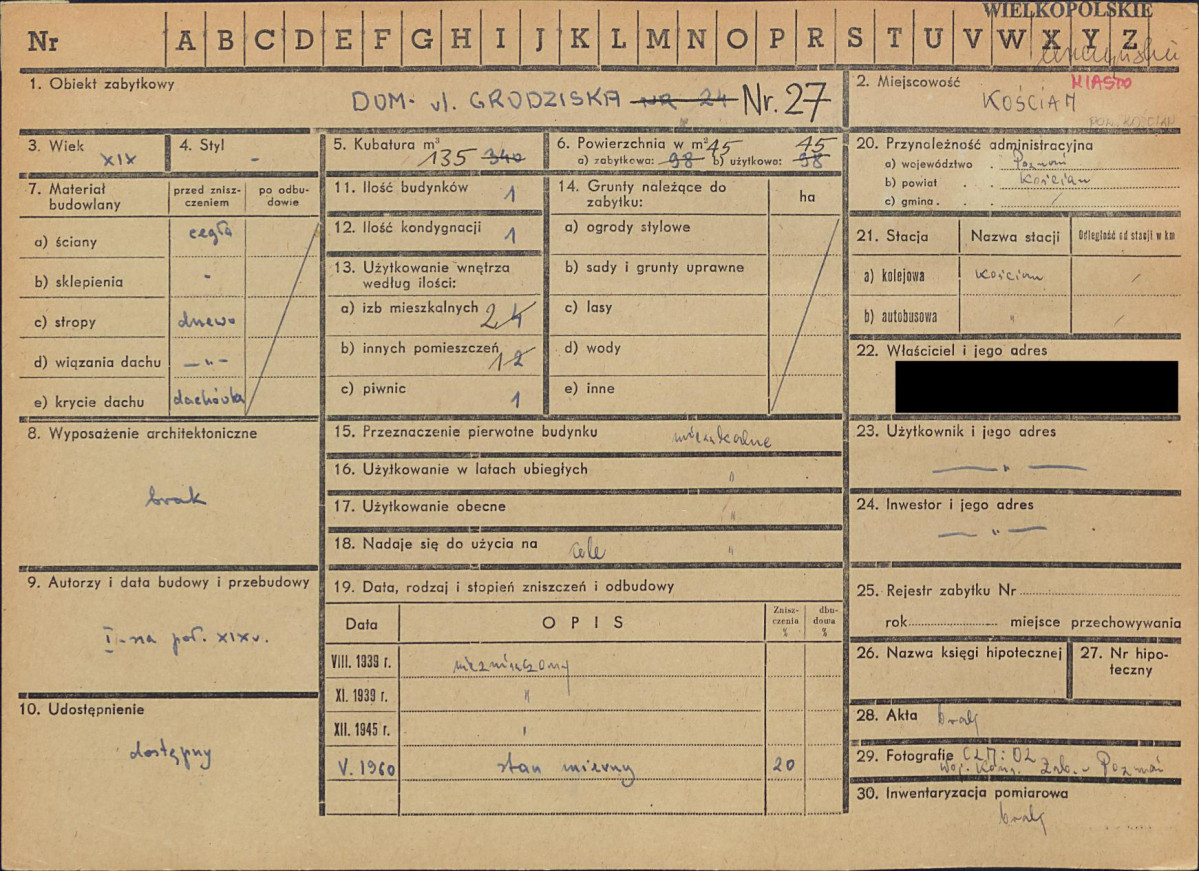 WIELKOPOLSKIE
Nr A B C D E F G H I J K L M N O P R S T U V W X Y Z
1. Obiekt zabytkowy
DOM - ul. GRODZISKA NR 24 Nr. 27
2. Miejscowość
MIASTO
KOŚCIAN
POW. KOŚCIAN
3. Wiek
XIX
4. Styl
-
5. Kubatura m³
135 340
6. Powierzchnia w m²
a) zabytkowa: 98 45 b) użytkowa: 98 45
7. Materiał budowlany
przed znisz-
czeniem
po odbu-
dowie
a) ściany cegła
b) sklepienia -
c) stropy drewo
d) wiązania dachu —"—
e) krycie dachu dachówka
8. Wyposażenie architektoniczne
brak
9. Autorzy i data budowy i przebudowy
I-sza poł. XIX w.
10. Udostępnienie
dostępny
11. Ilość budynków 1
12. Ilość kondygnacji 1
13. Użytkowanie wnętrza
według ilości:
a) izb mieszkalnych 2 4
b) innych pomieszczeń 1 2
c) piwnic 1
14. Grunty należące do
zabytku:
ha
a) ogrody stylowe
b) sady i grunty uprawne
c) lasy
d) wody
e) inne
15. Przeznaczenie pierwotne budynku mieszkalne
16. Użytkowanie w latach ubiegłych "
17. Użytkowanie obecne "
18. Nadaje się do użycia na cele "
19. Data, rodzaj i stopień zniszczeń i odbudowy
Data OPIS Znisz-
czenia
% dbu-
dowa
%
VIII. 1939 r. niezniszczony
XI. 1939 r. "
XII. 1945 r. "
V. 1960 stan mierny 20
20. Przynależność administracyjna
a) województwo . Poznań
b) powiat . . Kościan
c) gmina . . . /
21. Stacja Nazwa stacji Odległość od stacji w km
a) kolejowa Kościan /
b) autobusowa " /
22. Właściciel i jego adres
23. Użytkownik i jego adres
— " —
24. Inwestor i jego adres
— " —
25. Rejestr zabytku Nr
rok miejsce przechowywania
26. Nazwa księgi hipotecznej
27. Nr hipo-
teczny
28. Akta brak
29. Fotografie
Woj. Kons. Zab. - Poznań
30. Inwentaryzacja pomiarowa
brak